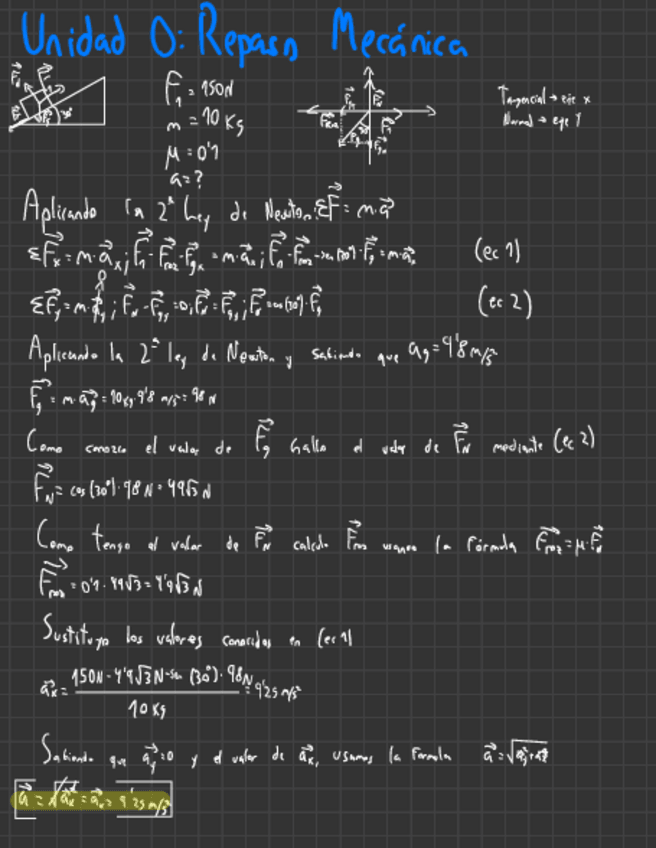 Unidad 0: Repaso Mecánica
F₁ = 150N
m = 10 Kg
μ = 0'1
a = ?
Tangencial → eje x
Normal → eje Y
30°
Aplicando la 2ª Ley de Newton: ΣF⃗ = m·a⃗
ΣF⃗x = m·a⃗x; F⃗₁ - F⃗roz - F⃗gx = m·a⃗x; F⃗₁ - F⃗roz - sen(30°)·F⃗g = m·a⃗x (ec 1)
0
ΣF⃗y = m·a⃗y; F⃗N - F⃗gy = 0; F⃗N = F⃗gy; F⃗N = cos(30°)·F⃗g (ec 2)
Aplicando la 2ª ley de Newton y sabiendo que ag = 9'8 m/s²
F⃗g = m·a⃗g = 10Kg·9'8 m/s² = 98 N
Como conozco el valor de F⃗g hallo el valor de F⃗N mediante (ec 2)
F⃗N = cos(30°)·98 N = 49√3 N
Como tengo el valor de F⃗N calculo F⃗roz usando la fórmula F⃗roz = μ·F⃗N
F⃗roz = 0'1·49√3 = 4'9√3 N
Sustituyo los valores conocidos en (ec 1)
a⃗x = (150N - 4'9√3 N - sen(30°)·98N) / 10 Kg = 9'25 m/s²
Sabiendo que a⃗y = 0 y el valor de a⃗x, usamos la fórmula a⃗ = √
a⃗ = √a⃗x² = a⃗x = 9'25 m/s²